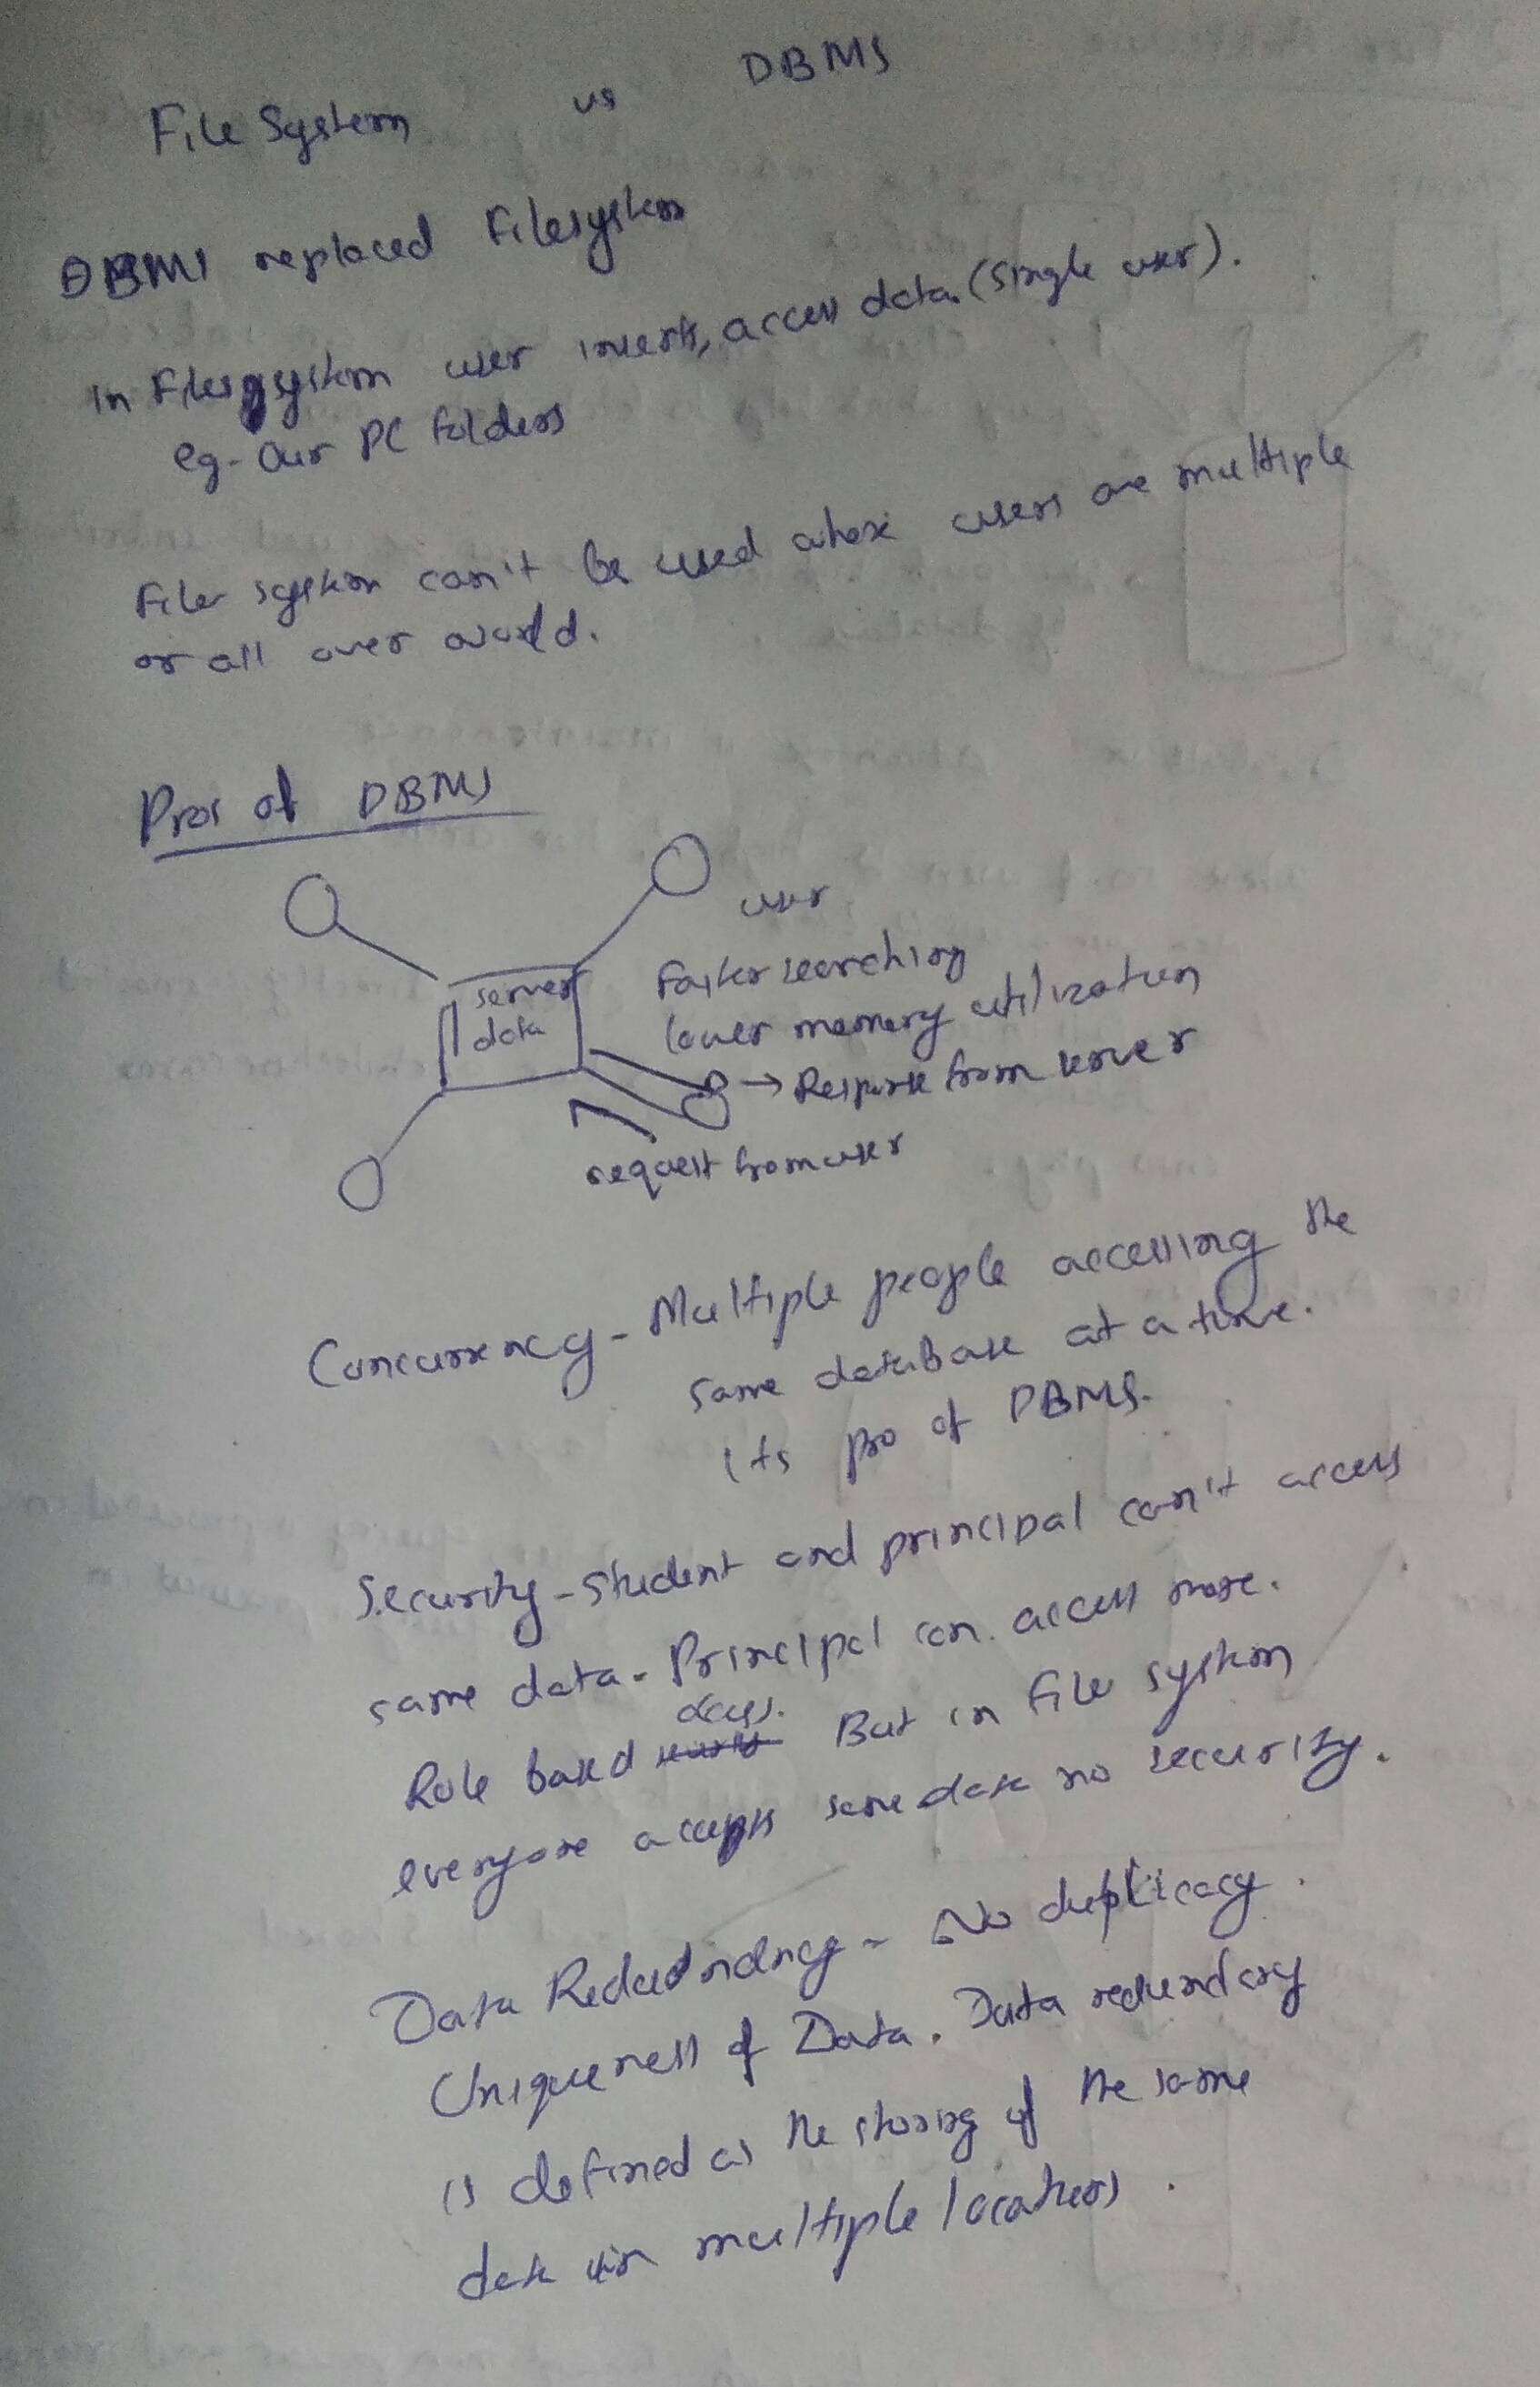 File System vs DBMS
DBMS replaced Filesystem
In Filesystem user inserts, access data. (single user).
eg- Our PC folders
File system can't be used where users are multiple
or all over world.
Pros of DBMS
user
server
data
Faster searching
lower memory utilization
→ Response from server
request from user
Concurrency - Multiple people accessing the
same database at a time.
Its pro of DBMS.
Security - Student and principal can't access
same data. Principal can access more.
Role based But in file system
everyone access same data no security.
Data Redundancy - No duplicacy.
Uniqueness of Data. Data redundancy
is defined as the storing of the same
data in multiple locations.